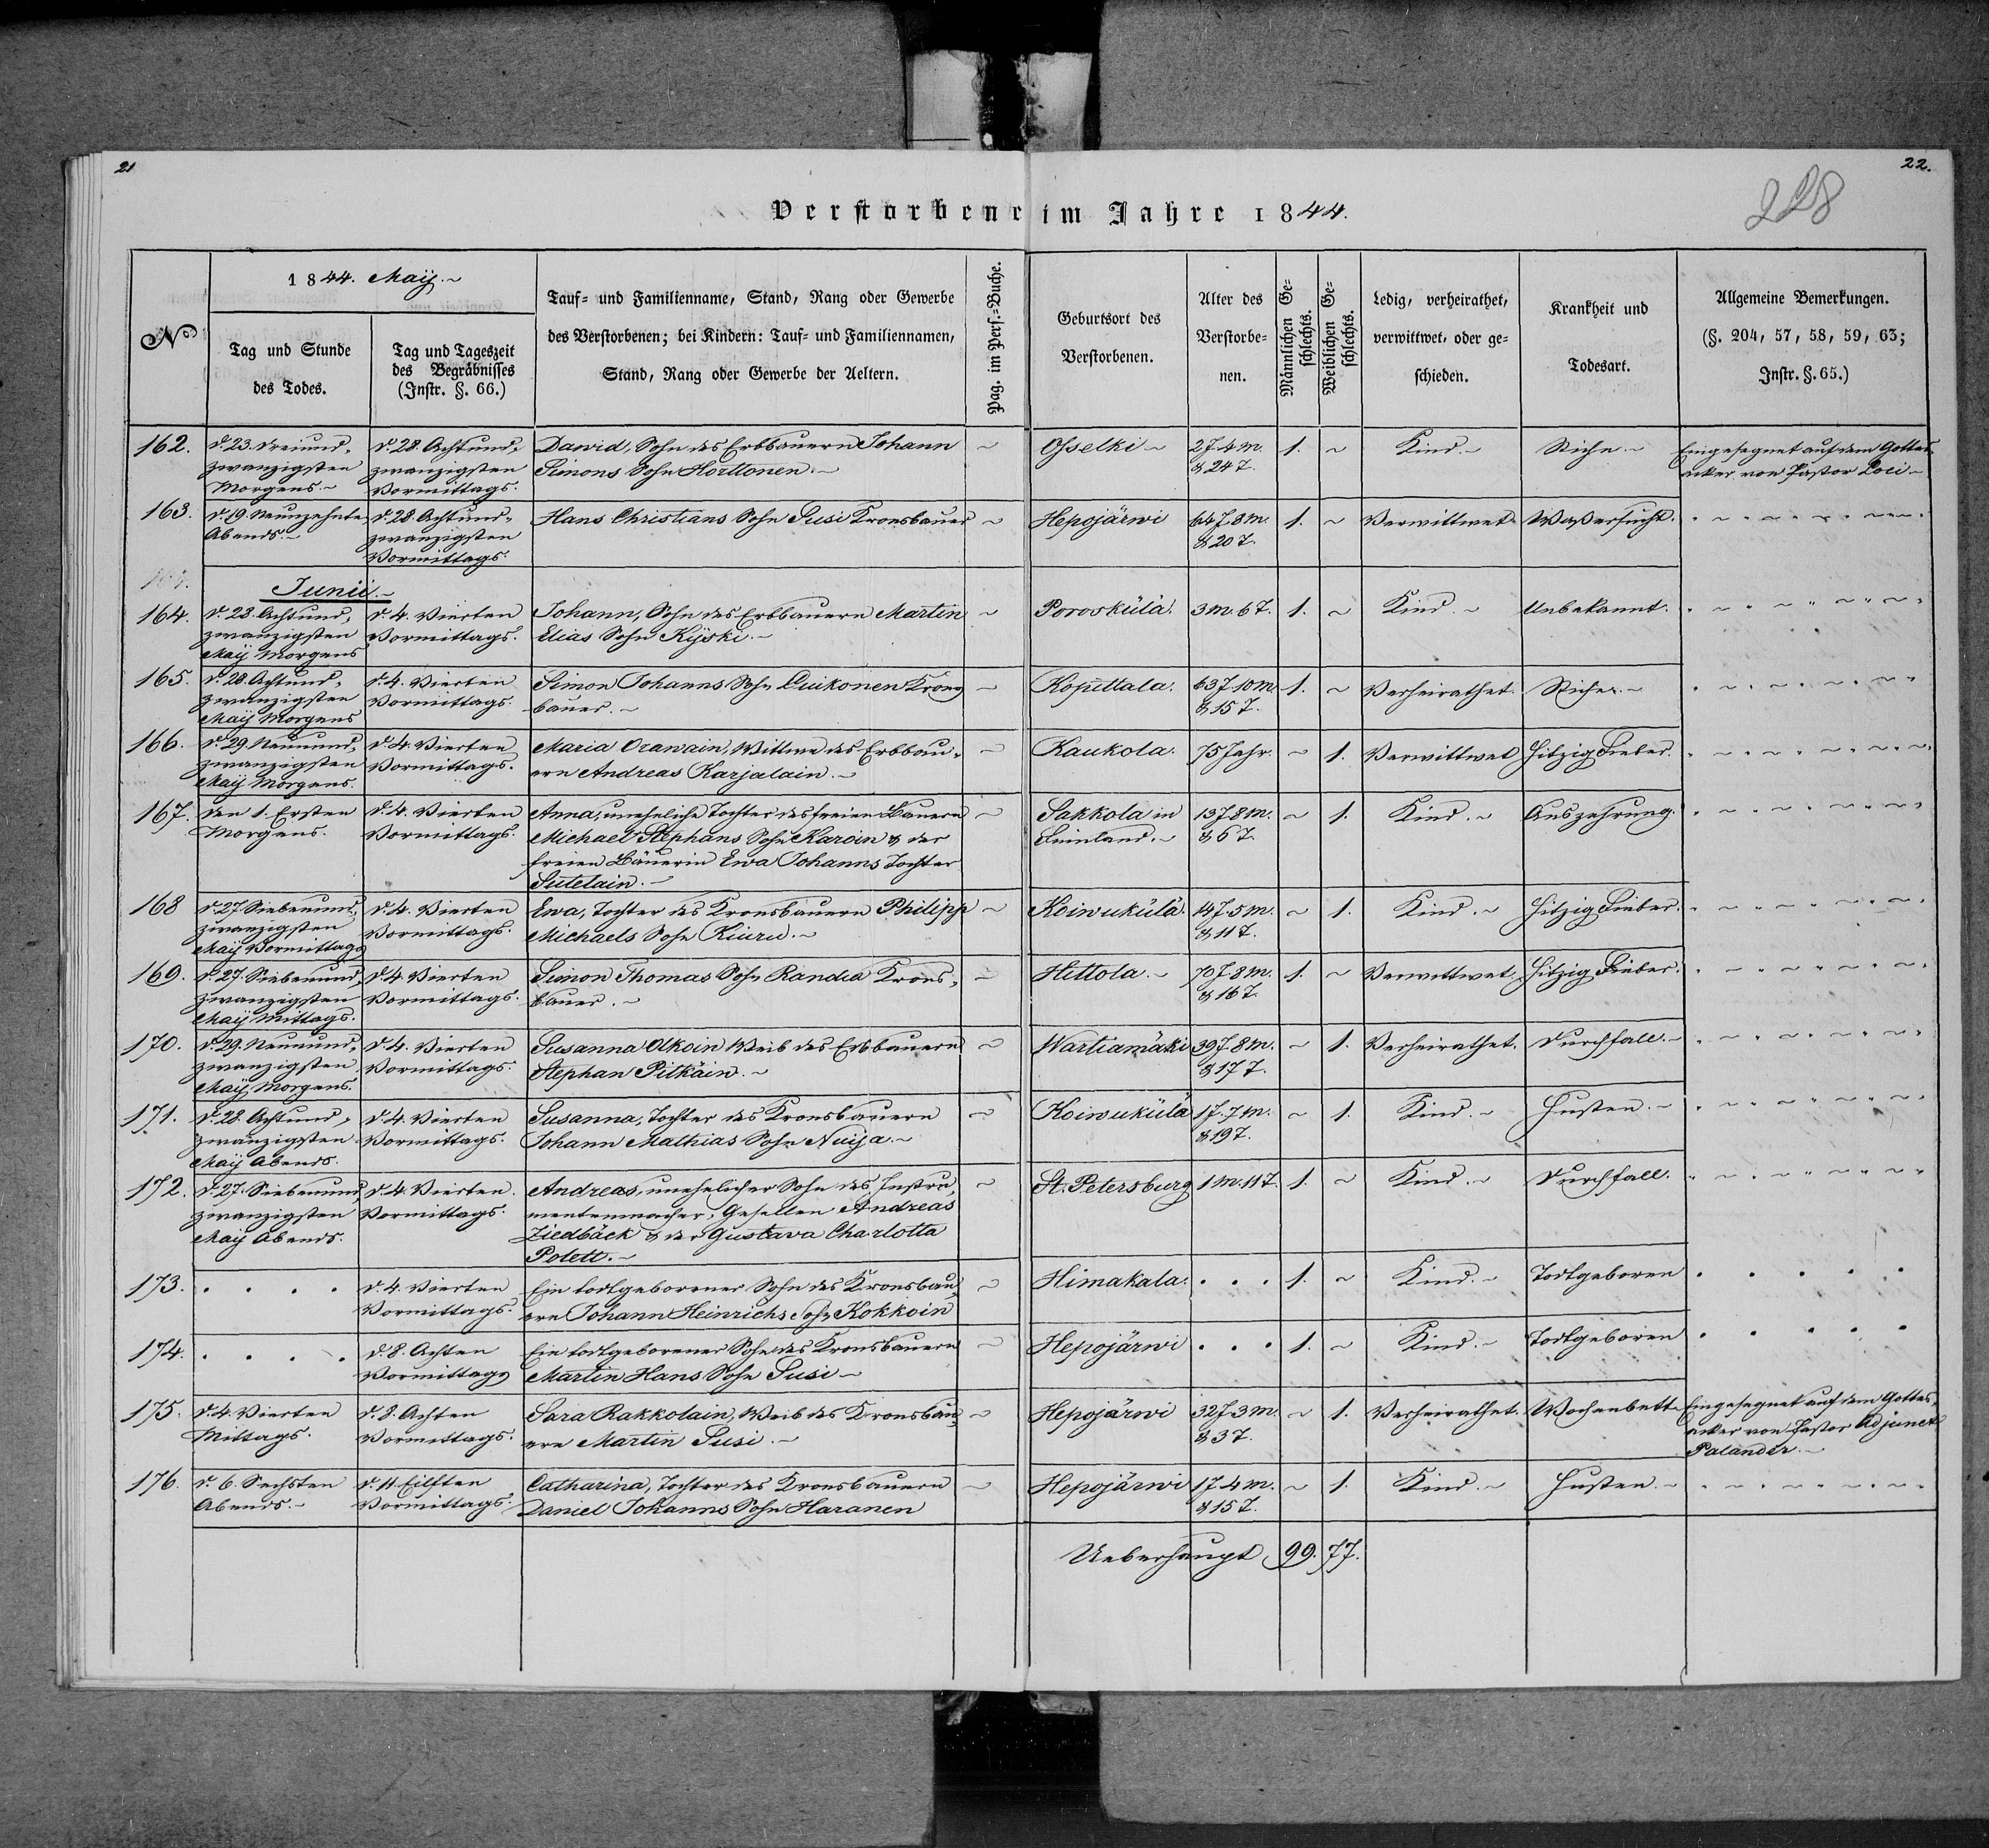 21
22.
228
Verstorbene im Jahre 1844.
No
1844. Maij.~
Tag und Stunde
des Todes.
Tag und Tageszeit
des Begräbnisses
(Instr. §. 66.)
Tauf- und Familienname, Stand, Rang oder Gewerbe
des Verstorbenen; bei Kindern: Tauf- und Familiennamen,
Stand, Rang oder Gewerbe der Aeltern.
Pag. im Pers.-Buche.
Geburtsort des
Verstorbenen.
Alter des
Verstorbe-
nen.
Männlichen Ge-
schlechts.
Weiblichen Ge-
schlechts.
Ledig, verheirathet,
verwittwet, oder ge-
schieden.
Krankheit und
Todesart.
Allgemeine Bemerkungen.
(§. 204, 57, 58, 59, 63;
Instr. §. 65.)
162.
d. 23. Dreiund-
zwanzigsten
Morgens.~
d. 28. Achtund-
zwanzigsten
Vormittags.
Dawid, Sohn des Erbbauern Johann
Simons Sohn Horttonen.~
Osselki~
2 J. 4 M.
& 24 T.
1.
Kind.~
Stiche.~
Eingesegnet auf dem Gottes-
acker von Pastor Poci~
163.
d. 19. Neunzehnten
Abends.~
d. 28. Achtund-
zwanzigsten
Vormittags.
Hans Christians Sohn Susi Kronsbauer
Hepojärwi
64 J. 3 M.
& 20 T.
1.
Verwittwet
Waßersucht.
Junii.~
164.
d. 28. Achtund-
zwanzigsten
Maij Morgens
d. 4. Vierten
Vormittags.
Johann, Sohn des Erbbauern Martin
Elias Sohn Kÿski.~
Porosküla.
3 M. 6 T.
1.
Kind.~
Unbekannt.
165.
d. 28. Achtund-
zwanzigsten
Maij Morgens
d. 4. Vierten
Vormittags.
Simon Johanns Sohn Luikonen Krons-
bauer.~
Koputtala.
63 J. 10 M.
& 15 T.
1.
Verheirathet.
Stiche.~
166.
d. 29. Neunund-
zwanzigsten
Maij Morgens.
d. 4. Vierten
Vormittags.
Maria Orawain, Wittwe des Erbbau-
ern Andreas Karjalain.~
Kaukola.
75 Jahr.
1.
Verwittwet
Hitzig Fieber.
167.
den 1. Ersten
Morgens.
d. 4. Vierten
Vormittags.
Anna, uneheliche Tochter des freien Bauern
Michael Stephans Sohn Karoin & der
freien Bäuerin Ewa Johanns Tochter
Sutelain.~
Sakkola in
Finnland.~
13 J. 8 M.
& 6 T.
1.
Kind.~
Auszehrung.
168
d. 27. Siebenund-
zwanzigsten
Maij Vormittags
d. 4. Vierten
Vormittags.
Ewa, Tochter des Kronsbauern Philipp
Michaels Sohn Kiuru.~
Koiwukülä.
14 J. 5 M.
& 11 T.
1.
Kind.~
Hitzig Fieber.
169.
d. 27. Siebenund-
zwanzigsten
Maij Mittags.
d. 4. Vierten
Vormittags.
Simon Thomas Sohn Randia Krons-
bauer.~
Hittola.~
70 J. 8 M.
& 16 T.
1.
Verwittwet
Hitzig Fieber.
170.
d. 29. Neunund-
zwanzigsten
Maij Morgens.
d. 4. Vierten
Vormittags.
Susanna Ulkoin Weib des Erbbauern
Stephan Pitkäin.~
Wartiamäki
39 J. 8 M.
& 17 T.
1.
Verheirathet.
Durchfall.~
171.
d. 28. Achtund-
zwanzigsten
Maij Abends.
d. 4. Vierten
Vormittags.
Susanna, Tochter des Kronsbauern
Johann Mathias Sohn Nuija.~
Koiwukülä
1 J. 7 M.
& 19 T.
1.
Kind.~
Husten.~
172.
d. 27. Siebenund
zwanzigsten
Maij Abends.
d. 4. Vierten.
Vormittags.
Andreas, unehelicher Sohn des Instru-
mentenmacher-Gesellen Andreas
Ziedbäck & der Gustava Charlotta
Polett.~
St. Petersburg
1 M. 11 T.
1.
Kind.~
Durchfall.
173.
d. 4. Vierten
Vormittags.
Ein todtgeborener Sohn des Kronsbau-
ern Johann Heinrichs Sohn Kokkoin
Himakala.
1.
Kind.~
Todtgeboren
174.
d. 8. Achten
Vormittags
Ein todtgeborener Sohn des Kronsbauern
Martin Hans Sohn Susi~
Hepojärwi
1.
Kind.~
Todtgeboren
175.
d. 4. Vierten
Mittags.
d. 8. Achten
Vormittags.
Sara Rakkolain, Weib des Kronsbau-
ern Martin Susi.~
Hepojärwi
32 J. 3 M.
& 3 T.
1.
Verheirathet.
Wochenbett.
Eingesegnet auf dem Gottes-
acker von Pastor Adjunct
Palander.~
176.
d. 6. Sechsten
Abends.~
d. 11. Eilften
Vormittags.
Catharina, Tochter des Kronsbauern
Daniel Johanns Sohn Haranen
Hepojärwi
1 J. 4 M.
& 15 T.
1.
Kind.~
Husten.~
Ueberhaupt 99. 77.